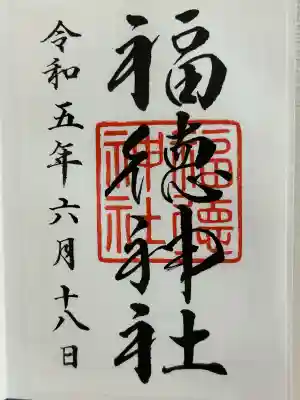 福徳神社
福徳神社
令和五年六月十八日